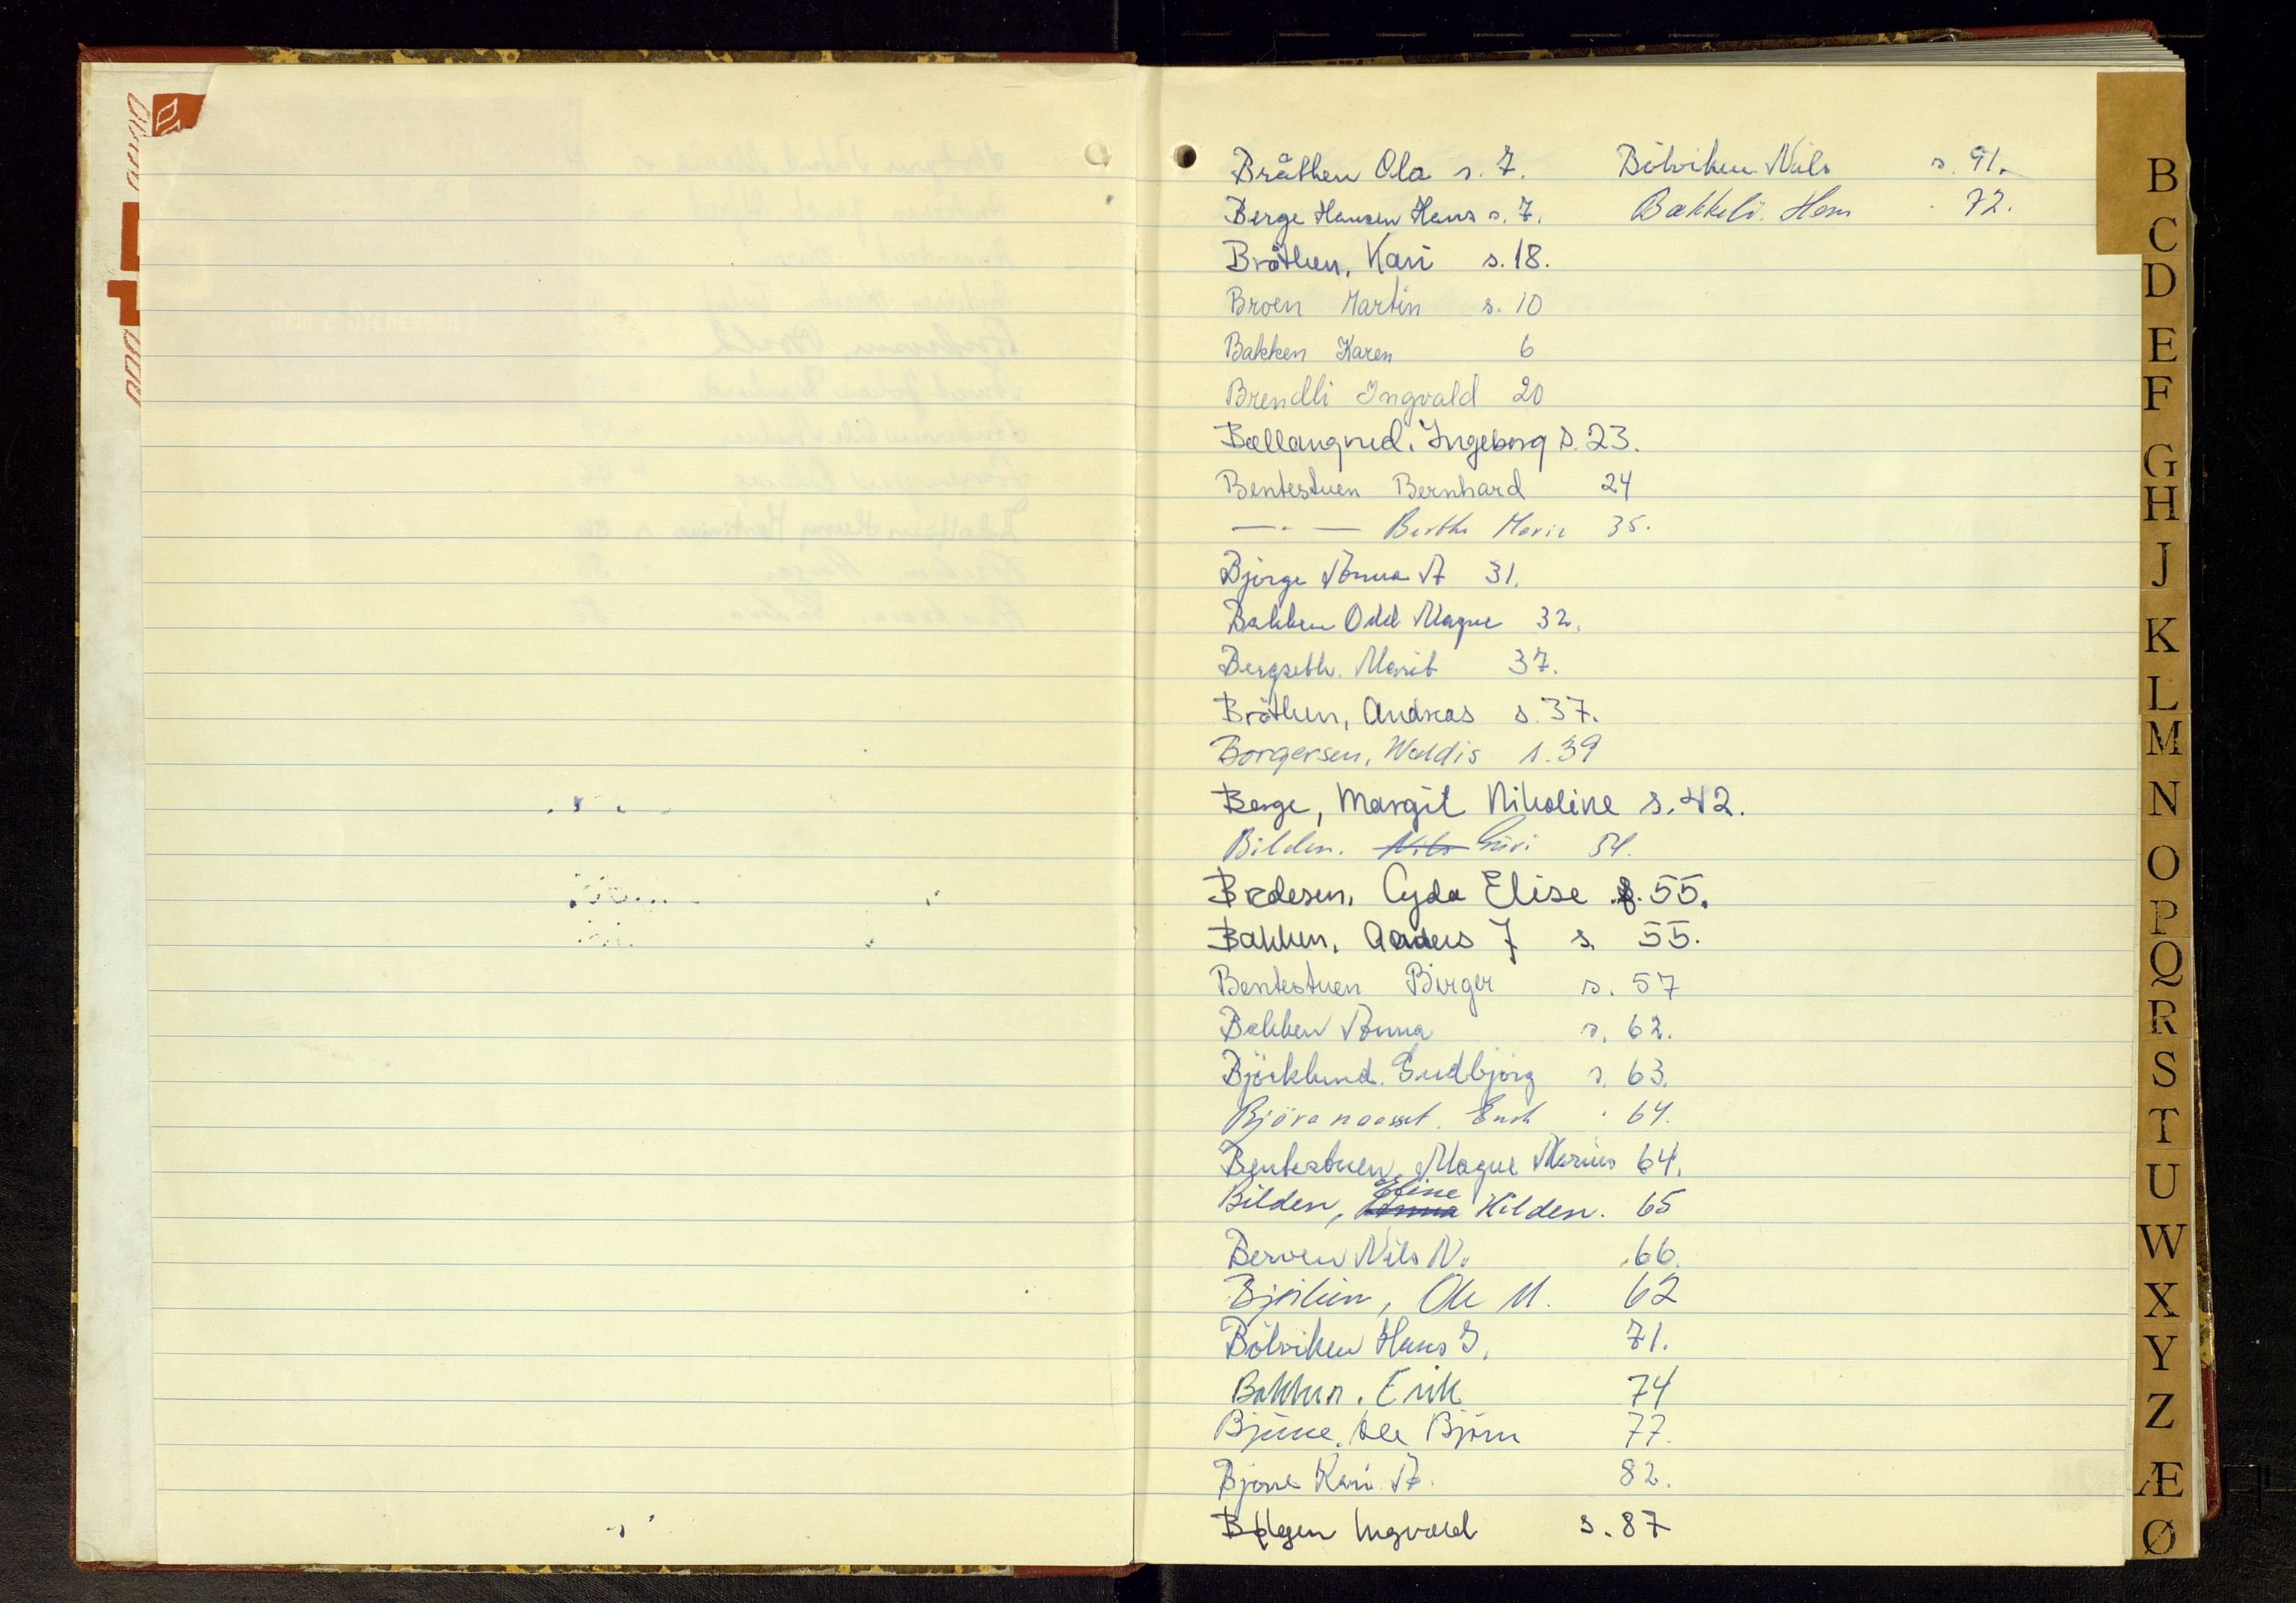 Bråthen Ola s. 7.
Berge Hansen Hans s. 7.
Bråthen, Kari s. 18.
Broen Martin s. 10
Bakken Karen 6
Brendli Ingvald 20
Ballangrud. Ingeborg s. 23.
Bentestuen Bernhard 24
— . — Berthe Marie 35.
Bjørge Anna A 31.
Bakken Odd Magne 32.
Bergseth. Marit 37.
Bråthen, Andreas s. 37.
Borgersen, Waldis s. 39
Berge, Margit Nikoline s. 42.
Bilden. Nils Guri 54.
Bredesen, Gyda Elise s. 55.
Bakken, Anders J s. 55.
Bentestuen Birger s. 57
Bakken Anna s. 62.
Björklund. Gudbjörg s. 63.
64.
Bentestuen, Magne Marius 64.
Eline
Bilden, Anna Hilden. 65
Berven Nils N. 66.
Ole M. 62
Bölviken Hans J. 71.
Bakken. Erik 74
Ole Bjørn 77.
Kari A. 82.
Ingvald s. 87
Bölviken Nils s. 91.
Bakkeli. 72.
B
C
D
E
F
G
H
J
K
L
M
N
O
P
Q
R
S
T
U
W
X
Y
Z
Æ
Ø